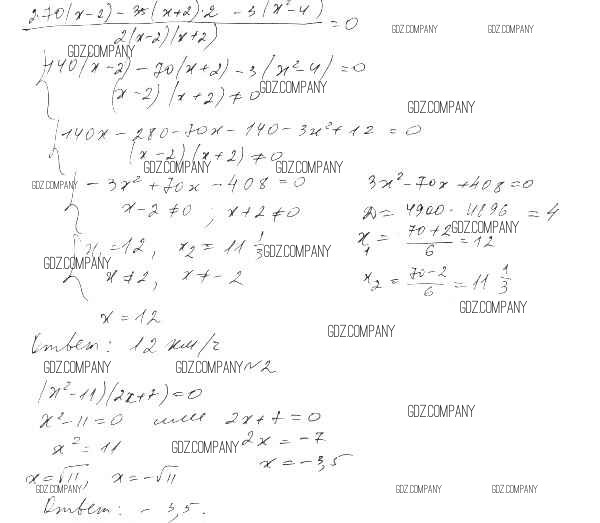 2·70(x-2) - 35(x+2)·2 - 3(x²-4) / 2(x-2)(x+2) = 0
GDZ.COMPANY GDZ.COMPANY
GDZ.COMPANY
140(x-2) - 70(x+2) - 3(x²-4) = 0
GDZ.COMPANY
(x-2)(x+2) ≠ 0
GDZ.COMPANY
140x - 280 - 70x - 140 - 3x² + 12 = 0
(x-2)(x+2) ≠ 0
GDZ.COMPANY GDZ.COMPANY
GDZ.COMPANY - 3x² + 70x - 408 = 0 3x² - 70x + 408 = 0
x-2 ≠ 0 ; x+2 ≠ 0 D = 4900 - 4896 = 4
GDZ.COMPANY
x₁ = 12, x₂ = 11 1/3 x₁ = 70+2 / 6 = 12
GDZ.COMPANY
GDZ.COMPANY
x ≠ 2, x ≠ -2 x₂ = 70-2 / 6 = 11 1/3
GDZ.COMPANY
x = 12
GDZ.COMPANY
Ответ: 12 км/ч
GDZ.COMPANY GDZ.COMPANY №2
(x²-11)(2x+7) = 0
GDZ.COMPANY
x²-11 = 0 или 2x+7 = 0
x² = 11 GDZ.COMPANY 2x = -7
x = -3,5
x = √11, x = -√11
GDZ.COMPANY GDZ.COMPANY GDZ.COMPANY
Ответ: - 3,5.